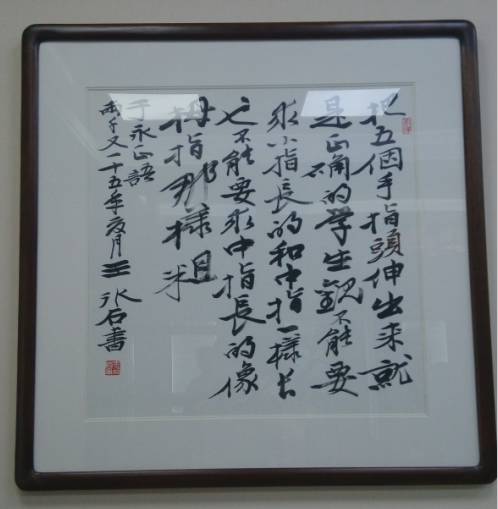 把五個手指頭伸出来就
是正确的学生觀不能要
求小指長的和中指一樣长
也不能要求中指長的像
拇指那樣粗
于永正語
丙子又一十五年夏月
冰石書